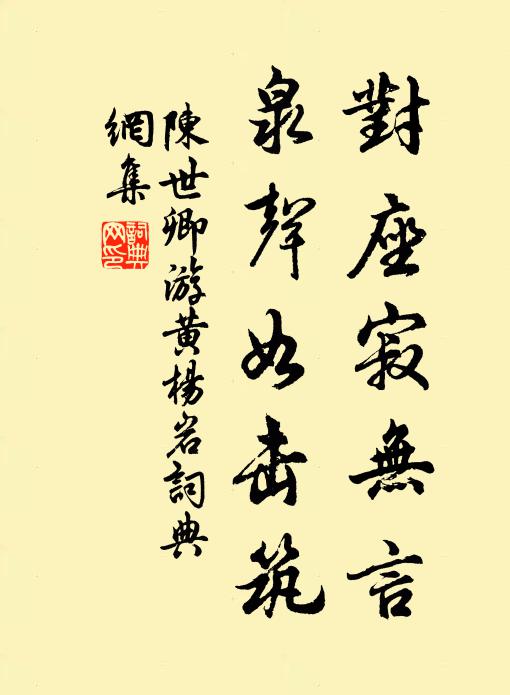 對座寂無言
泉聲如击筑
陳世卿游黄楊岩詞典
網集
詞典
网印